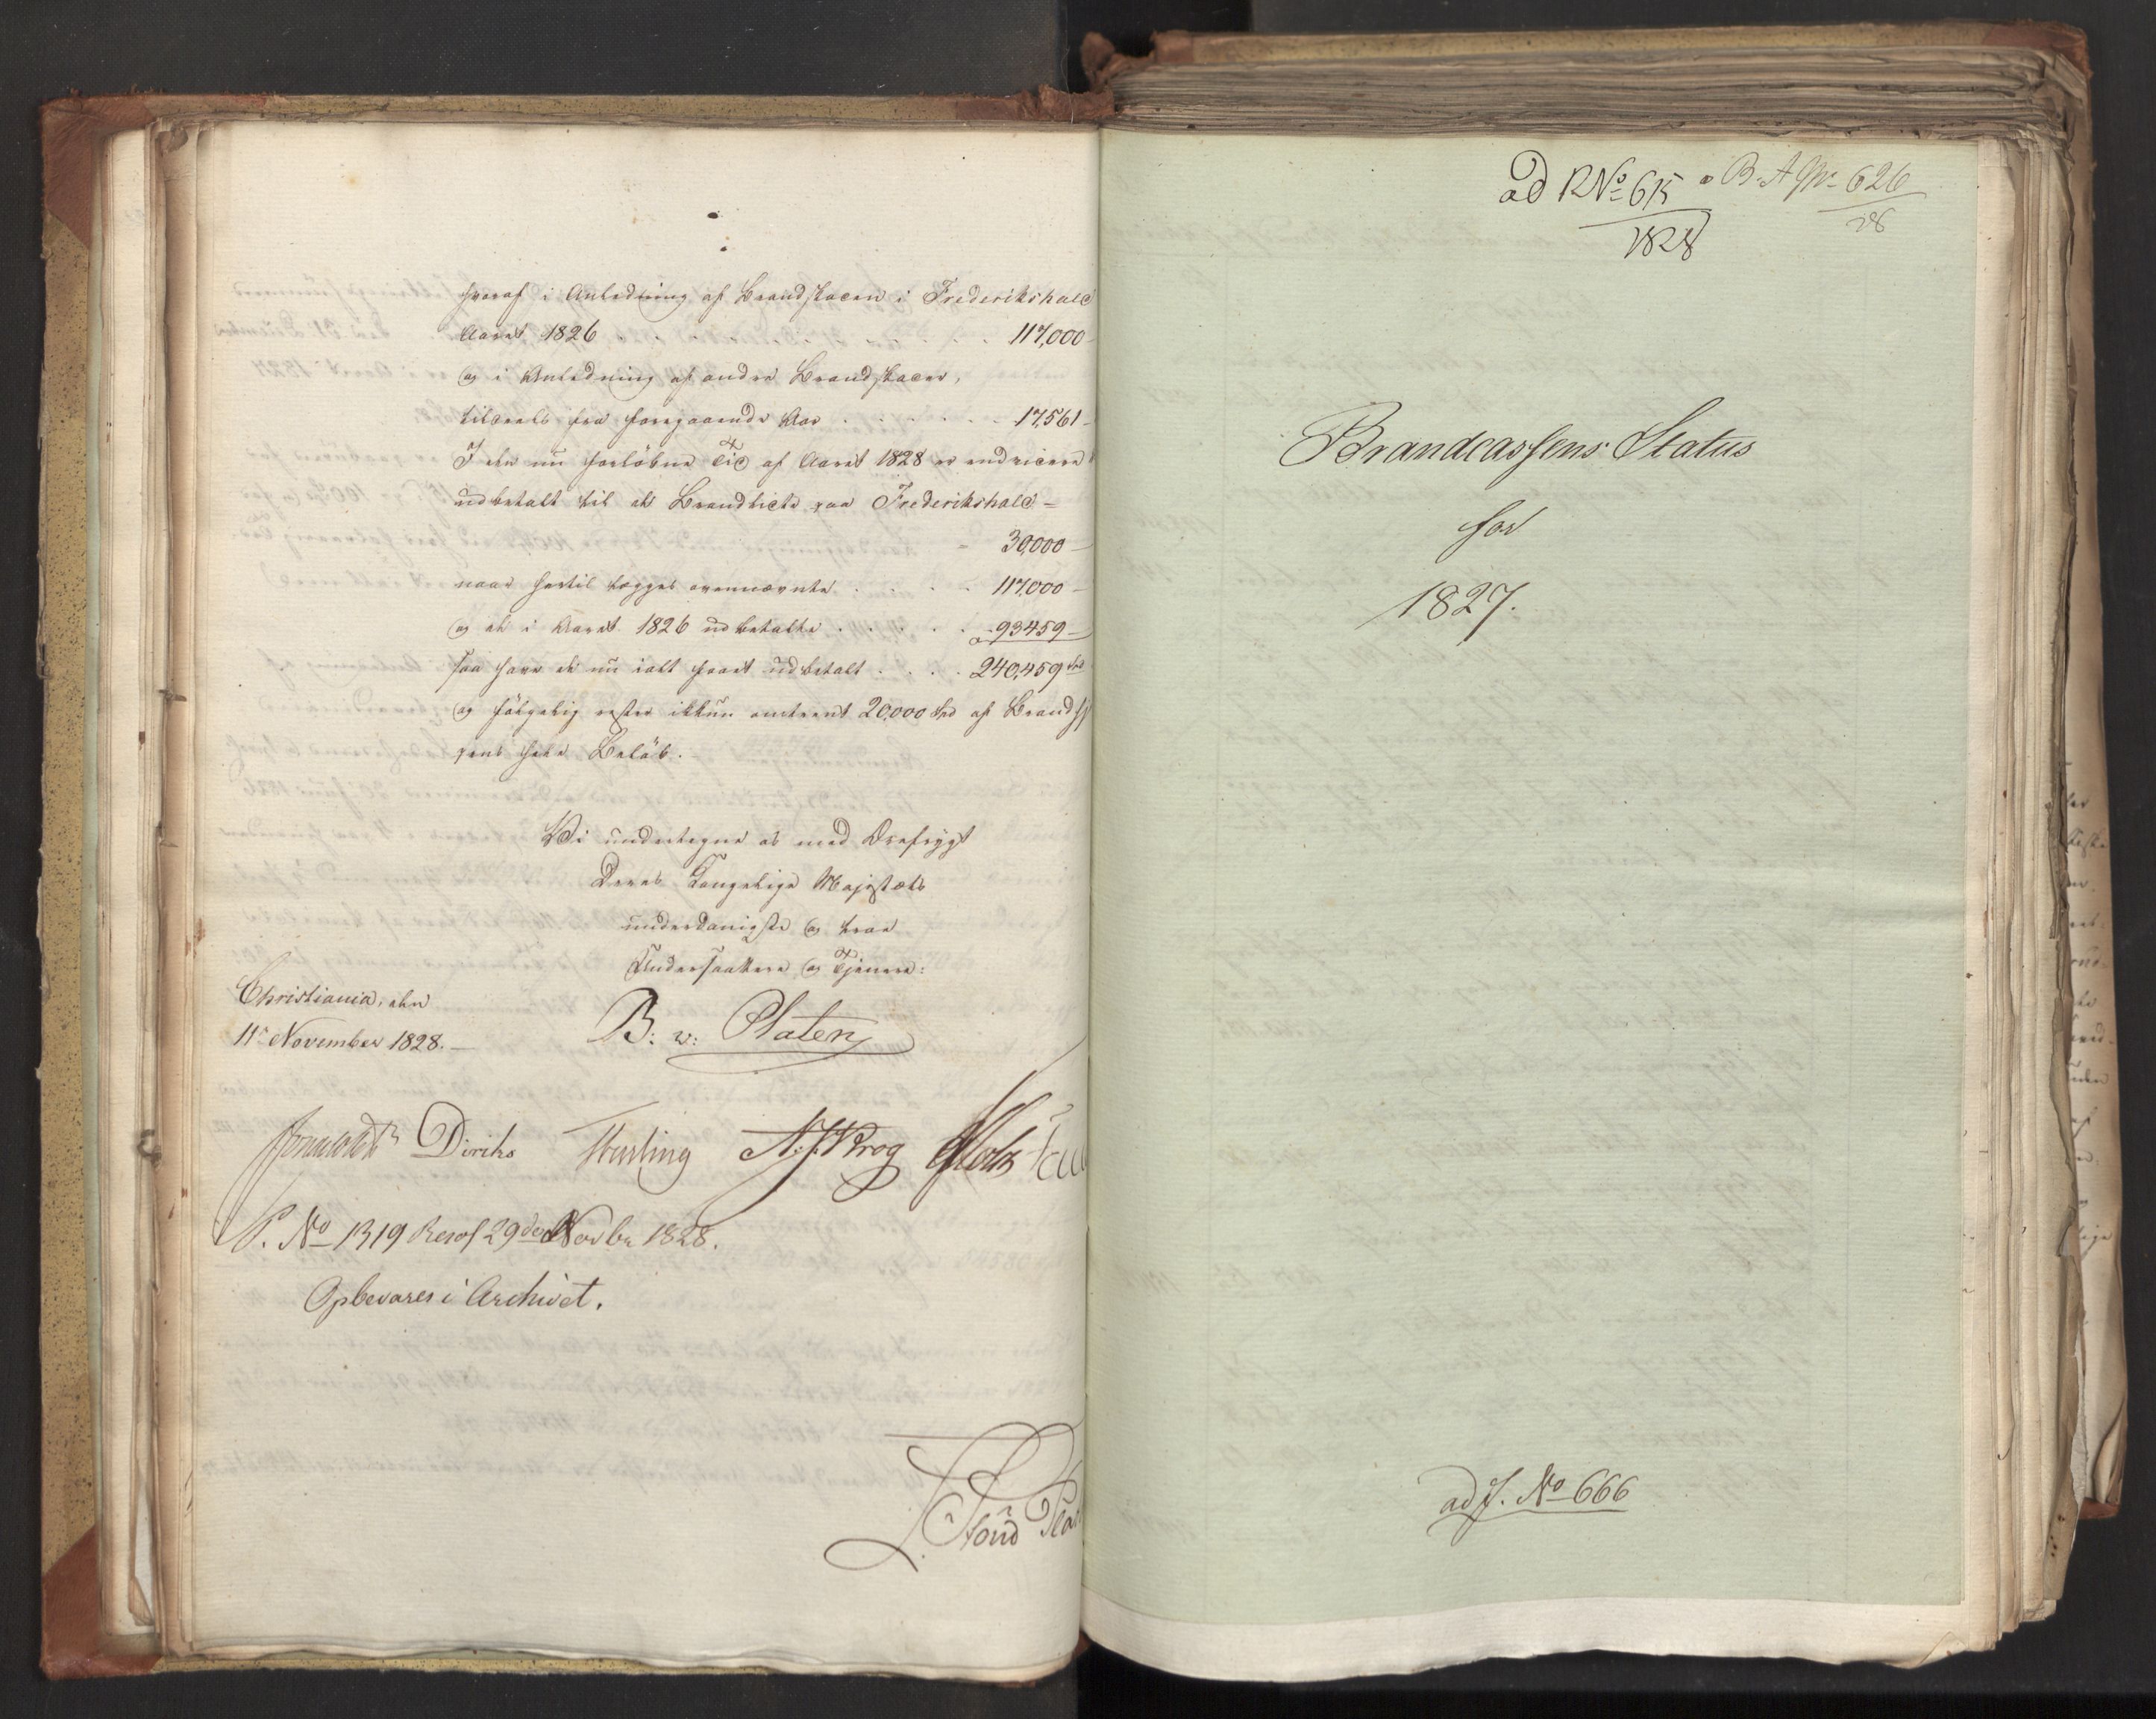 hvoraf i Anledning af Brandskaden i Frederikshald
Aaret 1826 . . . . . . . . 117,000
og i Anledning af andre Brandskader,
tildeels fra foregaaende Aar . . . . . . 17,561
I den nu forløbne Tid af Aaret 1828 er endvidere
udbetalt til de Brandlidte paa Frederikshald =
30,000
naar hertil lægges ovennævnte . . . . 117,000
og de i Aaret 1826 udbetalte . . . . . 93459
saa have de nu ialt faaet udbetalt . . . . 240,459 Spd
og følgelig rester ikkun omtrent 20,000 Spd af Brand
hele Beløb.
Vi undertegne os med Ærefrygt
Deres Kongelige Majestæts
underdanigste og troe
Undersaattere og Tjenere:
Christiania, den
11te November 1828.
B: v: Platen
Diriks N. J. Krog
P. No 1319 Resol 29de Novbr 1828.
Opbevares i Archivet.
ad R No 615
1828
B. A No 626
28
Brandcassens Status
for
1827.
ad J. No 666